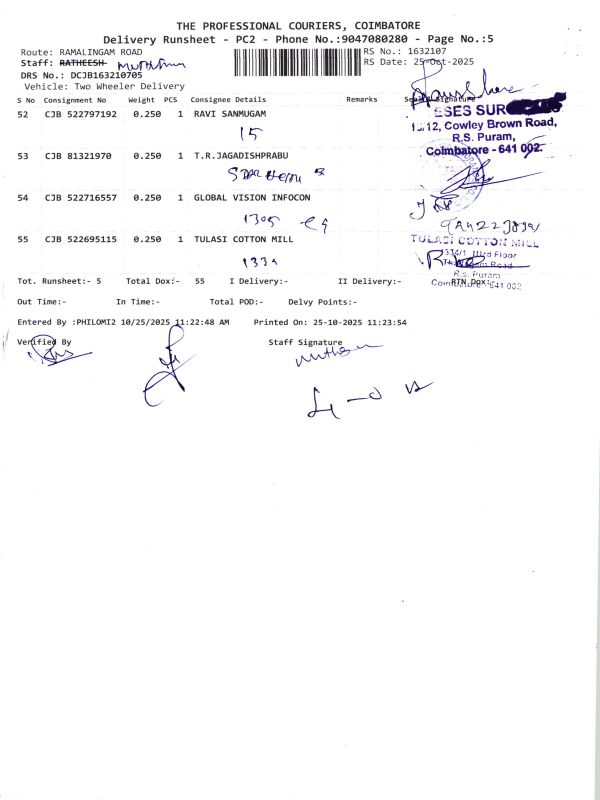 THE PROFESSIONAL COURIERS, COIMBATORE
Delivery Runsheet - PC2 - Phone No.:9047080280 - Page No.:5
Route: RAMALINGAM ROAD
RS No.: 1632107
Staff: RATHEESH
RS Date: 25-Oct-2025
DRS No.: DCJB163210705
Vehicle: Two Wheeler Delivery
S No Consignment No Weight PCS Consignee Details Remarks Seal & Signature
52 CJB 522797192 0.250 1 RAVI SANMUGAM
15
Cowley Brown Road,
R.S. Puram,
Coimbatore - 641 002.
53 CJB 81321970 0.250 1 T.R.JAGADISHPRABU
54 CJB 522716557 0.250 1 GLOBAL VISION INFOCON
1305
55 CJB 522695115 0.250 1 TULASI COTTON MILL
1339
TULASI COTTON MILL
334/1 IIIrd Floor
R.S. Puram
Coimbatore - 641 002
Tot. Runsheet:- 5 Total Dox:- 55 I Delivery:- II Delivery:- RTN Dox:-
Out Time:- In Time:- Total POD:- Delvy Points:-
Entered By :PHILOMI2 10/25/2025 11:22:48 AM Printed On: 25-10-2025 11:23:54
Verified By Staff Signature